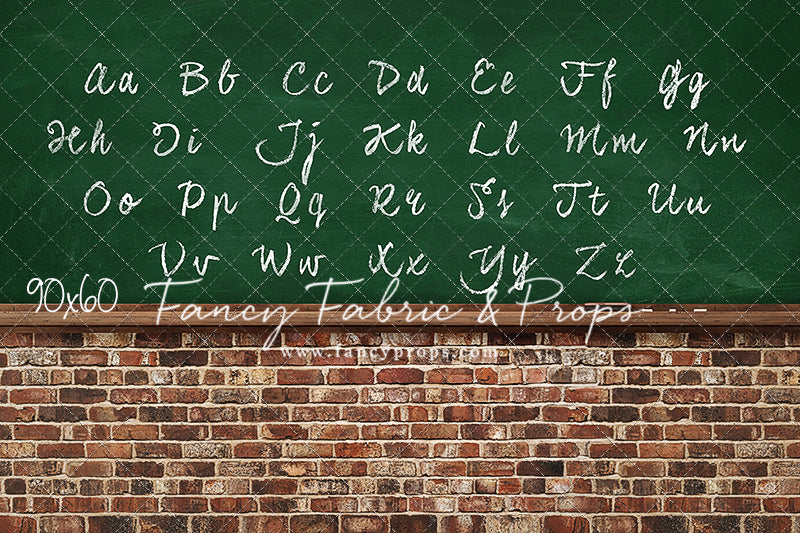 Aa Bb Cc Dd Ee Ff Gg
Hh Ii Jj Kk Ll Mm Nn
Oo Pp Qq Rr Ss Tt Uu
Vv Ww Xx Yy Zz
90x60 Fancy Fabric & Props
www.fancyprops.com